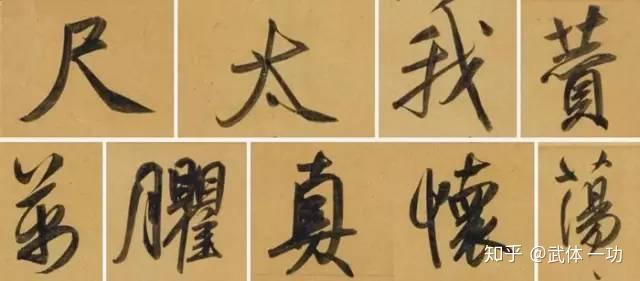 尺太我
萬臞真懷蕩
知乎 @武体一功